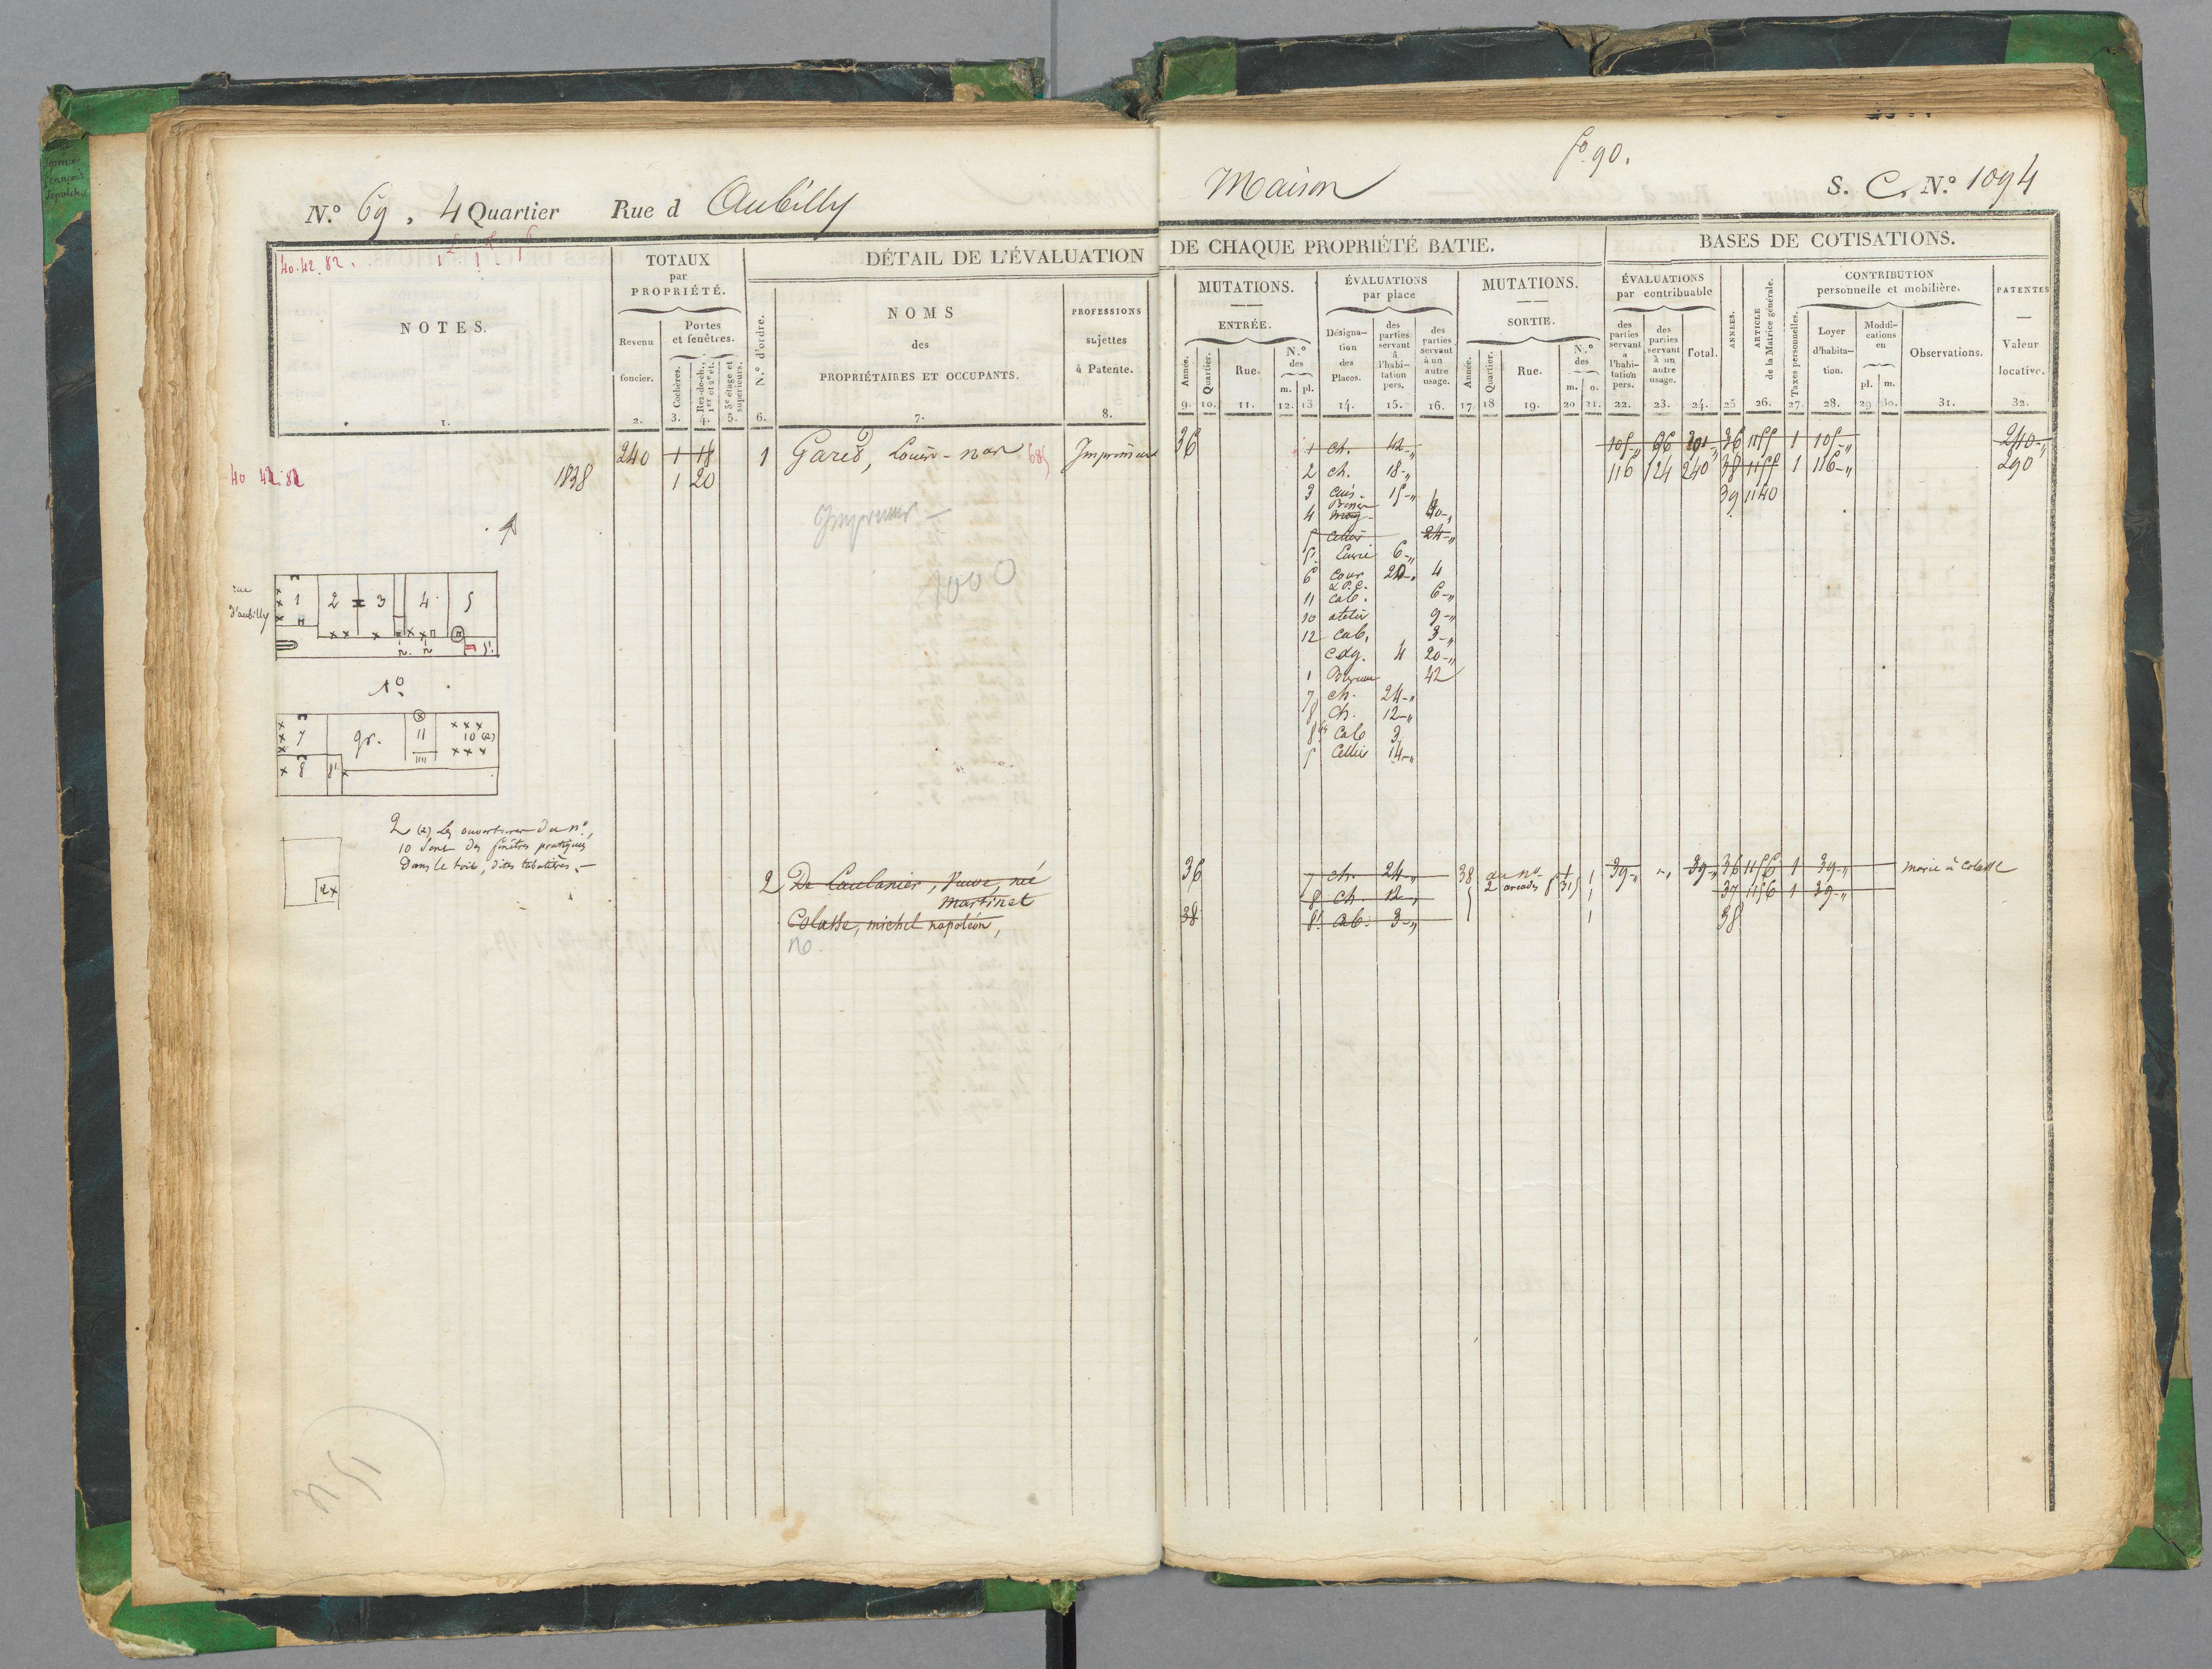 N.º 69, 4 Quartier Rue d Aubilly
Maison
fº 90.
S. C. N.º 1094
40.42.82.
NOTES.
1.
TOTAUX
par
PROPRIÉTÉ.
Revenu
foncier.
2.
Portes
et fenêtres.
Cochères.
3.
Rez-de-ch.,
1er et 2e ét.
4.
3e étage et
supérieurs.
5.
DÉTAIL DE L'ÉVALUATION
N.º d'ordre.
6.
NOMS
des
PROPRIÉTAIRES ET OCCUPANTS.
7.
PROFESSIONS
sujettes
à Patente.
8.
DE CHAQUE PROPRIÉTÉ BATIE.
MUTATIONS.
ENTRÉE.
Année.
9.
Quartier.
10.
Rue.
11.
N.º
des
m. pl.
12. 13
ÉVALUATIONS
par place
Désigna-
tion
des
Places.
14.
des
parties
servant
à
l'habi-
tation
pers.
15.
des
parties
servant
à un
autre
usage.
16.
MUTATIONS.
SORTIE.
Année.
17.
Quartier.
18
Rue.
19.
N.º
des
m. o.
20 21.
BASES DE COTISATIONS.
ÉVALUATIONS
par contribuable
des
parties
servant
à
l'habi-
tation
pers.
22.
des
parties
servant
à un
autre
usage.
23.
Total.
24.
ANNÉES.
25
ARTICLE
de la Matrice générale.
26.
CONTRIBUTION
personnelle et mobilière.
Taxes personnelles.
27.
Loyer
d'habita-
tion.
28.
Modifi-
cations
en
pl. m.
29 30.
Observations.
31.
PATENTES
Valeur
locative.
32.
240 1 18 1 Imprimeur
40 42 82 1838 1 20
36 1 ch. 42-„ 105-„ 96 36 1155 1 105-„ 240-„
2 ch. 18-„ 116 124 240 38 1155 1 116-„ 290
3 cuis. 15-„ 39 1140
4 40-„
5 cellier 24-„
6-„
6 cour 20-„ 4
11 cab. 6-„
10 atelier 9-„
12 cab. 3-„
4 20-„
1 Bureau 42
7 ch. 24-„
8 ch. 12-„
cab 3
5 Cellier 14-„
rue
d'aubilly
1 2 3 4 5
5'.
7 gr. 11 10 (2)
8 8'
2 (2) Les ouvertures du nº
10 sont des fenêtres pratiquées
dans le toit, dites tabatières.—
2000
36 7 ch. 24-„ 38 39-„ 39-„ 36 1156 1 39-„ marié à Colasse
8 ch. 12-„ 37 1156 1 39-„
38 8' cab. 3-„ 1 38
2 Veuve, née
martinet
Colasse, michel napoléon,
no.